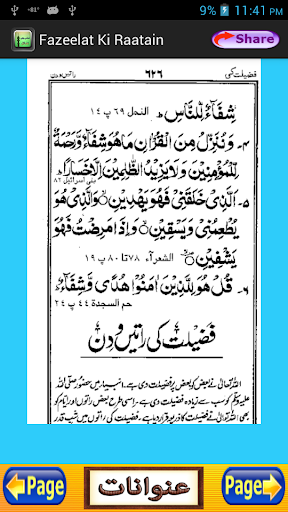 9% 11:41 PM
Fazeelat Ki Raatain
Share
فضیلت کی ۶۲۶ راتیں و دن
شِفَآءٌ لِّلنَّاسِ النحل ۶۹ پ ۱۴
۴۔ وَنُنَزِّلُ مِنَ الْقُرْاٰنِ مَا هُوَ شِفَآءٌ وَّرَحْمَةٌ
لِّلْمُؤْمِنِيْنَ وَلَا يَزِيْدُ الظّٰلِمِيْنَ اِلَّا خَسَارًا بنی اسرائیل ۸۲
۵۔ الَّذِىْ خَلَقَنِىْ فَهُوَ يَهْدِيْنِ وَالَّذِىْ هُوَ
يُطْعِمُنِىْ وَيَسْقِيْنِ وَاِذَا مَرِضْتُ فَهُوَ
يَشْفِيْنِ الشعرآء ۷۸ تا ۸۰ پ ۱۹
۶۔ قُلْ هُوَ لِلَّذِيْنَ اٰمَنُوْا هُدًى وَّشِفَآءٌ
حم السجدة ۴۴ پ ۲۴
فضیلت کی راتیں و دن
اللہ تعالیٰ نے بعض کو بعض پر فضیلت دی ہے۔ انبیاء میں حضور صلی اللہ
علیہ وسلم کو سب سے زیادہ فضیلت دی ہے۔ اسی طرح بعض راتوں اور ایام کو
دوسری راتوں اور دنوں پر فضیلت کی راتوں میں شب قدر
Page
عنوانات
Page